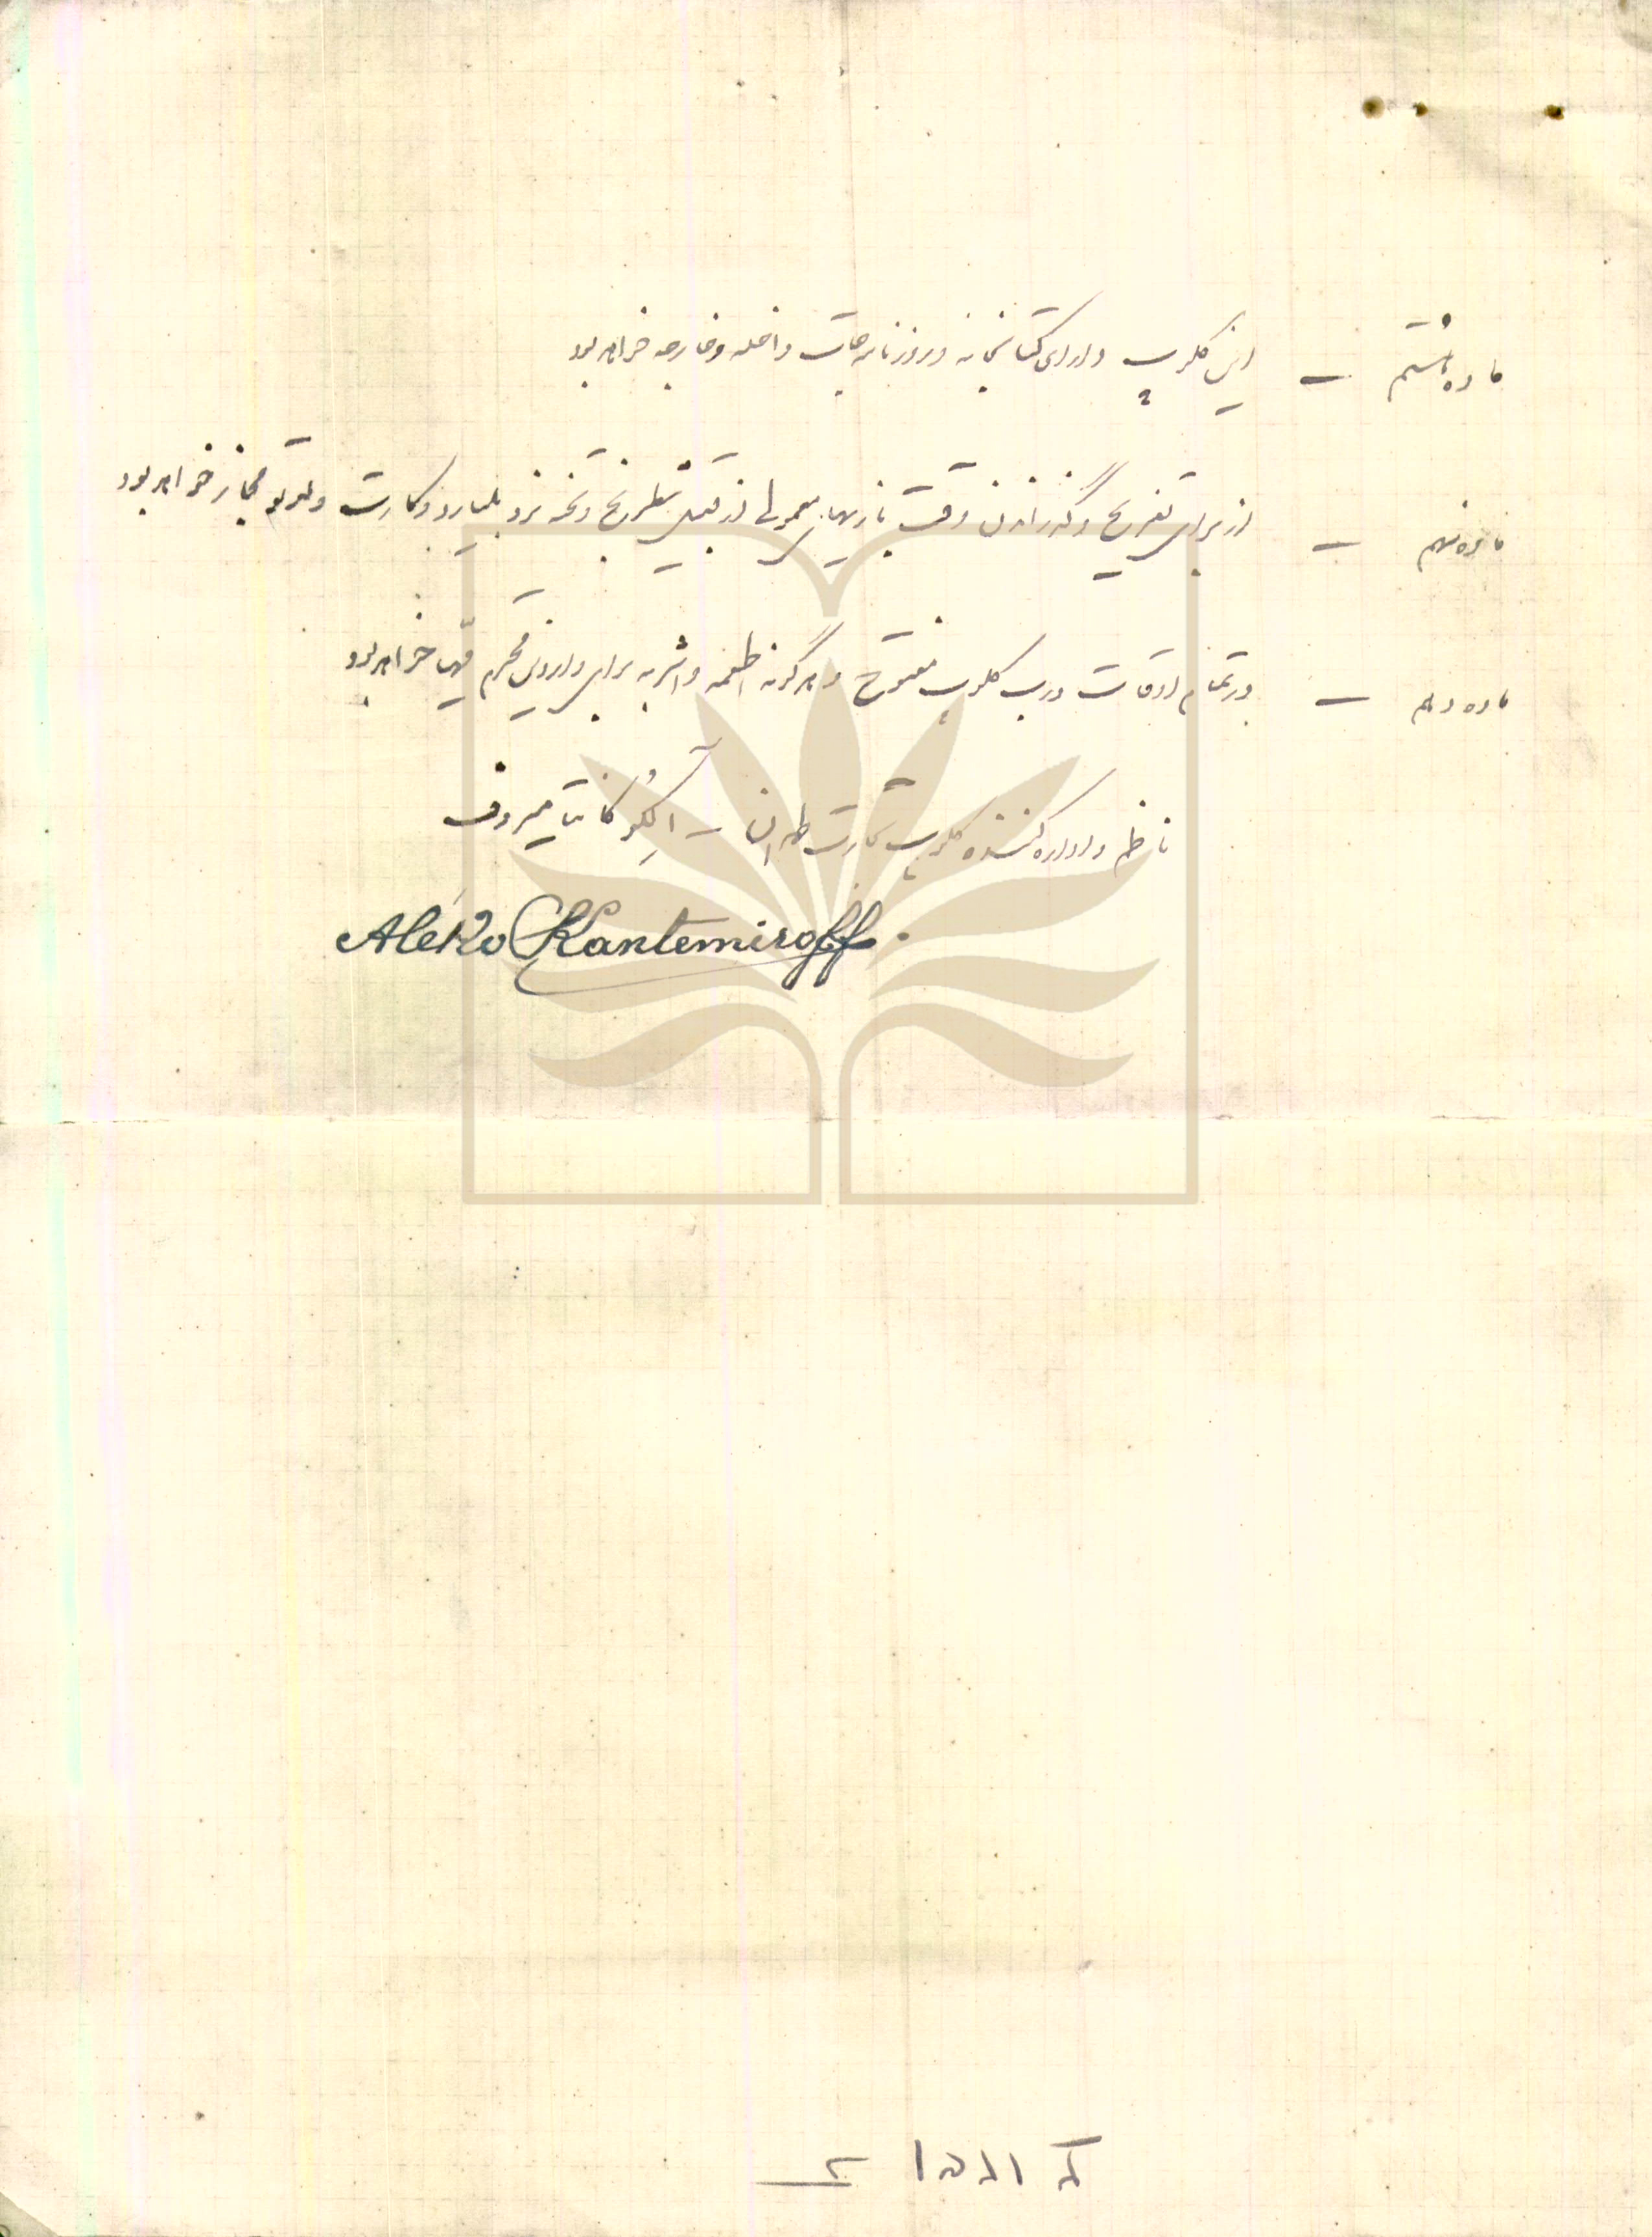 ماده هشتم — این کلوپ دارای کتابخانه و روزنامه‌جات داخله و خارجه خواهد بود
ماده نهم — از برای تفریح و گذراندن وقت بازیهای معمولی از قبیل شطرنج و تخته نرد بلیارد و کارت و لوتو مجاز خواهد بود
ماده دهم — در تمام اوقات درب کلوپ مفتوح و هرگونه اطعمه و اشربه برای واردین محترم مهیا خواهد بود
ناظم و اداره کننده کلوپ تجارت طهران – آلِکُو کانتامیروف
Aléko Kantemiroff.